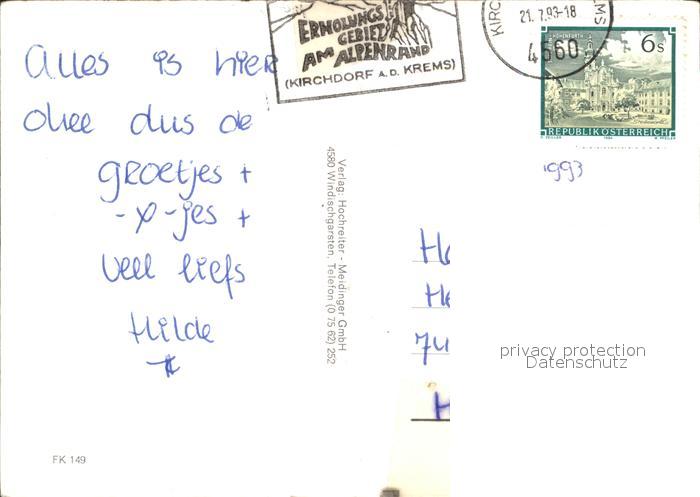 Alles is hier
okee dus de
groetjes +
-x-jes +
veel liefs
Hilde
FK 149
Verlag: Hochreiter - Meidinger GmbH
4580 Windischgarsten, Telefon (0 75 62) 252
ERHOLUNGS
GEBIET
AM ALPENRAND
(KIRCHDORF A.D. KREMS)
21.7.93-18
4560
6s
REPUBLIK ÖSTERREICH
1993
He
He
74
H
privacy protection
Datenschutz